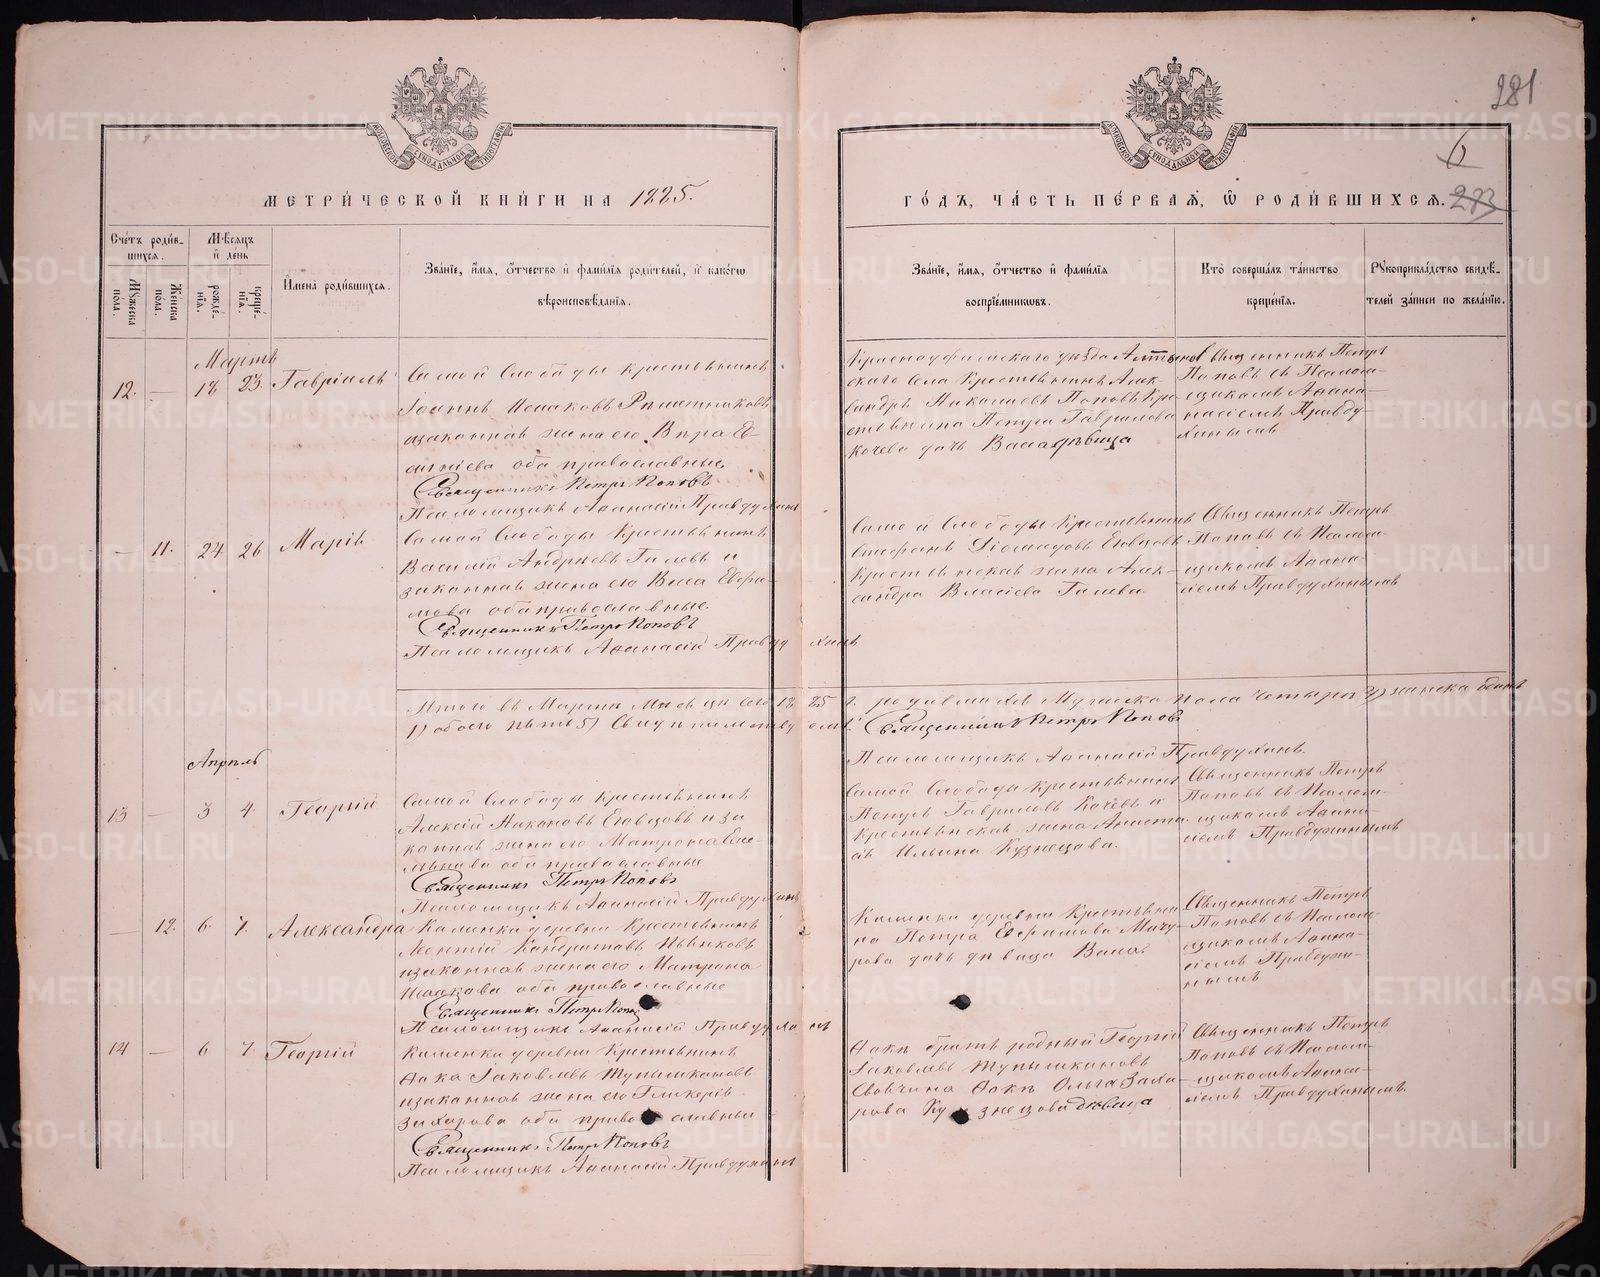 281
6
273
МЕТРИ́ЧЕСКОЙ КНИ́ГИ НА 1885.
ГО́ДЪ, ЧА́СТЬ ПЕ́РВАѦ, Ѡ РОДИ́ВШИХСѦ.
Сче́тъ роди́в-
шихсѧ.
Мꙋжеска
по́ла.
Же́нска
по́ла.
Мѣ́сѧцъ
и҆ де́нь
рожде́-
нїѧ.
креще́-
нїѧ.
И҆мена̀ роди́вшихсѧ.
Зва́нїе, и҆́мѧ, ѻ҆́тчество и҆ фами́лїѧ роди́телей, и҆ како́гѡ
вѣроисповѣ́данїѧ.
Зва́нїе, и҆́мѧ, ѻ҆́тчество и҆ фами́лїѧ
воспрїе́мникѡвъ.
Кто̀ соверша́лъ та́инство
креще́нїѧ.
Рꙋкоприкла́дство свидѣ́-
телей за́писи по жела́нїю.
Мартъ
12. — 18 23. Гавріилъ
Самой Слободы крестьянинъ
Іоаннъ Исааковъ Рѣшетниковъ
и законная жена его Вѣра Ев-
сигніева оба православные.
Священникъ Петръ Поповъ
Псаломщикъ Аѳанасій Правдухинъ
Красноуфимскаго уѣзда Алтынов
скаго села крестьянинъ Алек-
сандръ Николаевъ Поповъ Кре-
стьянина Петра Гаврилова
Кочева дочь Васса дѣвица
Священникъ Петръ
Поповъ съ Псалом-
щикомъ Аѳана-
насіемъ Правду-
хинымъ
— 11. 24 26 Марія
Самой Слободы Крестьянинъ
Василій Андреевъ Галевъ и
законная жена его Васса Ефре-
мова оба православные.
Священникъ Петръ Поповъ
Псаломщикъ Аѳанасій Правдухинъ
Самой Слободы Крестьянинъ
Стефанъ Діомидовъ Еговцовъ
Крестьянская жена Алек-
сандра Власіева Галева
Священникъ Петръ
Поповъ съ Псалом-
щикомъ Аѳана-
сіемъ Правдухинымъ
Итого въ Мартѣ Мѣсяцѣ сего 1885 г. родившихся Мужеска пола четыре 4) женска одинъ
1) обоего пять 5) Свидѣтельствуемъ: Священникъ Петръ Поповъ
Псаломщикъ Аѳанасій Правдухинъ.
Апрѣль
13 — 3 4. Георгій
Самой Слободы крестьянинъ
Алексій Никоновъ Еговцовъ и за
конная жена его Матрона Еме-
льянова оба православные
Священникъ Петръ Поповъ
Псаломщикъ Аѳанасій Правдухинъ
Самой Слободы крестьянинъ
Петръ Гавриловъ Кочевъ и
крестьянская жена Анаста-
сія Ильина Кузнецова.
Священникъ Петръ
Поповъ съ Псалом-
щикомъ Аѳана-
сіемъ Правдухинымъ
— 12. 6. 7. Александра
Каменки деревни Крестьянинъ
Леонтій Кондратовъ Пьянковъ
и законная жена его Матрона
Исаакова оба православные
Священникъ Петръ Поповъ
Псаломщикъ Аѳанасій Правдухинъ
Каменки деревни Крестьяни-
на Петра Ефремова Мачу-
рова дочь дѣвица Васса.
Священникъ Петръ
Поповъ съ Псалом-
щикомъ Аѳана-
сіемъ Правдухи-
нымъ
14 — 6 7. Георгій
Каменки деревни Крестьянинъ
Фока Іаковлевъ
и законная жена его Гликерія
Захарова оба православные
Священникъ Петръ Поповъ
Псаломщикъ Аѳанасій Правдухинъ
братъ родный Георгій
Іаковлевъ
Ольга Заха-
рова Кузнецова дѣвица
Священникъ Петръ
Поповъ съ Псалом-
щикомъ Аѳана-
сіемъ Правдухинымъ.